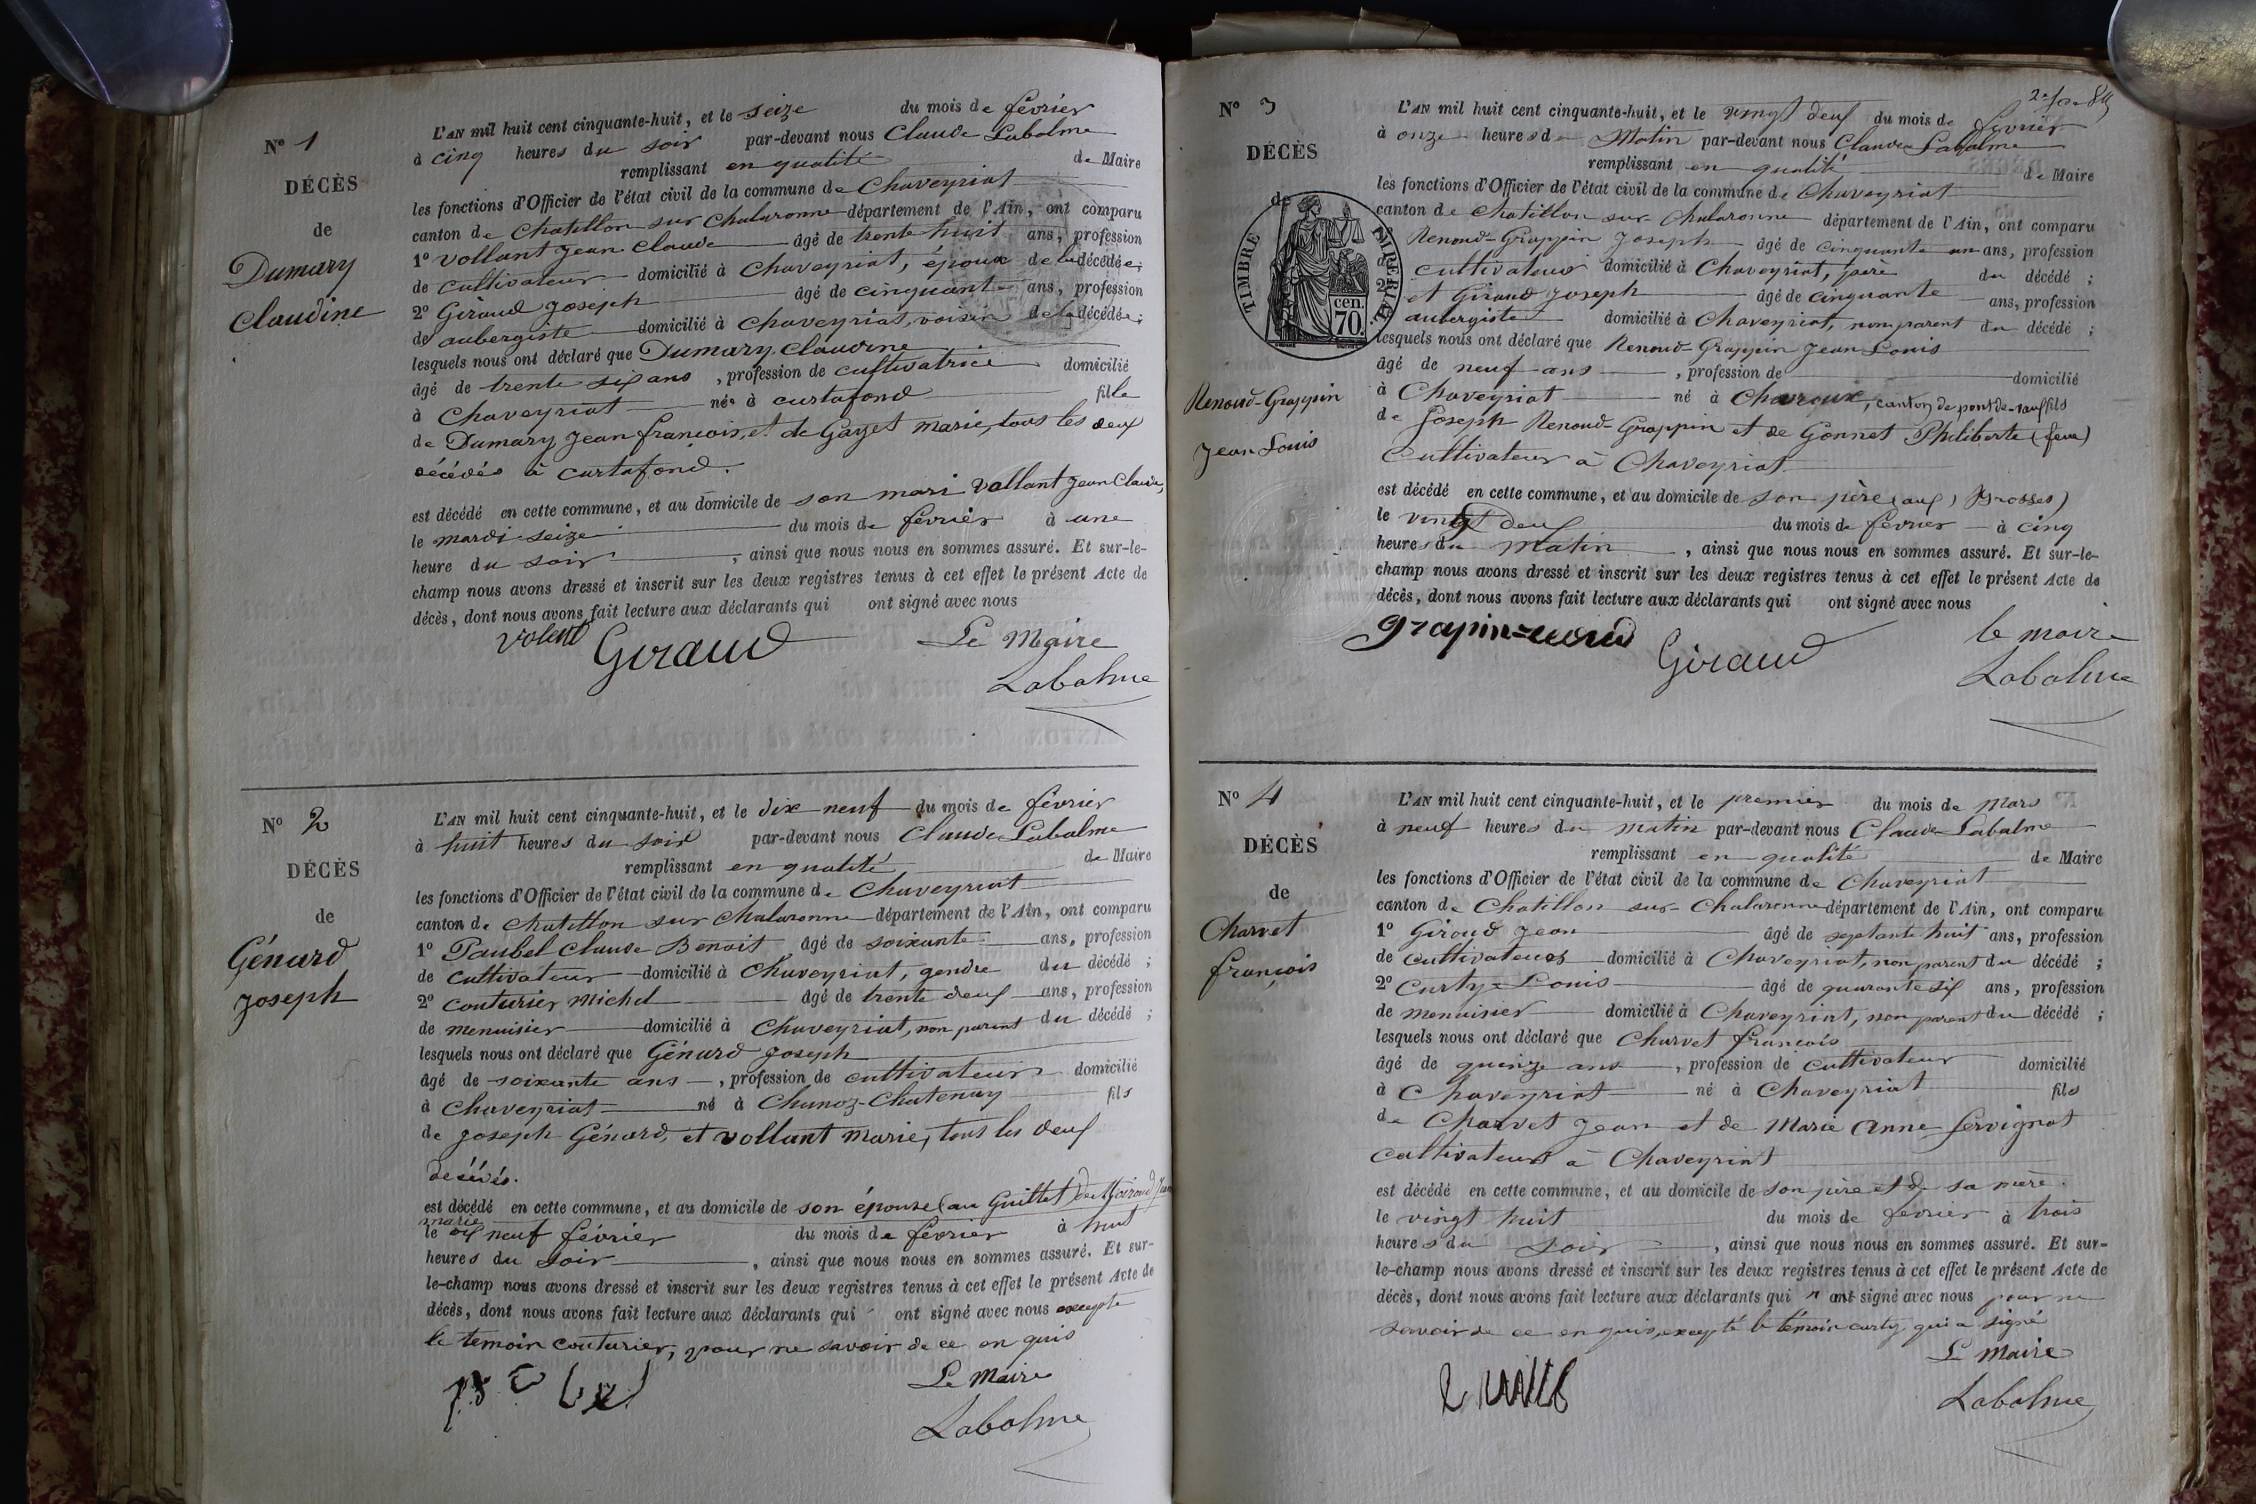 N° 1
DÉCÈS
de
Dumary
Claudine
L'AN mil huit cent cinquante-huit, et le seize du mois de février
à cinq heures du soir par-devant nous Claude Labalme
remplissant en qualité de Maire
les fonctions d'Officier de l'état civil de la commune de Chaveyriat
canton de Chatillon sur Chalaronne département de l'Ain, ont comparu
1° Vollant Jean Claude âgé de trente huit ans, profession
de cultivateur domicilié à Chaveyriat, époux de la décédée;
2° Giraud Joseph âgé de cinquante ans, profession
de aubergiste domicilié à Chaveyriat, voisin de la décédée;
lesquels nous ont déclaré que Dumary Claudine
âgé de trente six ans, profession de cultivatrice domicilié
à Chaveyriat née à curtafond fille
de Dumary Jean françois, et de Gayet marie, tous les deux
décédés à curtafond.
est décédé en cette commune, et au domicile de son mari Vollant Jean Claude,
le mardi seize du mois de février à une
heure du soir, ainsi que nous nous en sommes assuré. Et sur-le-
champ nous avons dressé et inscrit sur les deux registres tenus à cet effet le présent Acte de
décès, dont nous avons fait lecture aux déclarants qui ont signé avec nous
Volent Giraud Le Maire
Labalme
N° 2
DÉCÈS
de
Génard
Joseph
L'AN mil huit cent cinquante-huit, et le dix neuf du mois de février
à huit heures du soir par-devant nous Claude Labalme
remplissant en qualité de Maire
les fonctions d'Officier de l'état civil de la commune de Chaveyriat
canton de Chatillon sur Chalaronne département de l'Ain, ont comparu
1° Paubel Claude Benoit âgé de soixante ans, profession
de cultivateur domicilié à Chaveyriat, gendre du décédé;
2° Couturier Michel âgé de trente deux ans, profession
de menuisier domicilié à Chaveyriat, non parent du décédé;
lesquels nous ont déclaré que Génard Joseph
âgé de soixante ans, profession de cultivateur domicilié
à Chaveyriat né à Chanoz-Chatenay fils
de Joseph Génard, et vollant Marie, tous les deux
décédés.
est décédé en cette commune, et au domicile de son épouse (au Guillet)
marie
le dix neuf février du mois de février à huit
heures du soir, ainsi que nous nous en sommes assuré. Et sur-
le-champ nous avons dressé et inscrit sur les deux registres tenus à cet effet le présent Acte de
décès, dont nous avons fait lecture aux déclarants qui ont signé avec nous excepté
le temoin couturier, pour ne savoir de ce en quis
Le Maire
Labalme
N° 3
DÉCÈS
de
TIMBRE IMPERIAL
70 cen.
Renoud-Grappin
Jean Louis
L'AN mil huit cent cinquante-huit, et le vingt deux du mois de février
à onze heures de Matin par-devant nous Claude Labalme
remplissant en qualité de Maire
les fonctions d'Officier de l'état civil de la commune de Chaveyriat
canton de Chatillon sur Chalaronne département de l'Ain, ont comparu
Renoud-Grappin Joseph âgé de cinquante un ans, profession
cultivateur domicilié à Chaveyriat, père du décédé;
2° et Giraud Joseph âgé de cinquante ans, profession
aubergiste domicilié à Chaveyriat, non parent du décédé;
lesquels nous ont déclaré que Renoud-Grappin Jean Louis
âgé de neuf ans, profession de domicilié
à Chaveyriat né à Chavroux, canton de pont-de-vaux fils
de Joseph Renoud-Grappin et de Gonnet Philiberte (feue)
cultivateur à Chaveyriat
est décédé en cette commune, et au domicile de son père (aux Brosses)
le vingt deux du mois de février à cinq
heures du matin, ainsi que nous nous en sommes assuré. Et sur-le-
champ nous avons dressé et inscrit sur les deux registres tenus à cet effet le présent Acte de
décès, dont nous avons fait lecture aux déclarants qui ont signé avec nous
Giraud le maire
Labalme
N° 4
DÉCÈS
de
Charvet
françois
L'AN mil huit cent cinquante-huit, et le premier du mois de Mars
à neuf heures du matin par-devant nous Claude Labalme
remplissant en qualité de Maire
les fonctions d'Officier de l'état civil de la commune de Chaveyriat
canton de Chatillon sur Chalaronne département de l'Ain, ont comparu
1° Giroud Jean âgé de septante huit ans, profession
de cultivateur domicilié à Chaveyriat, non parent du décédé;
2° Curty Louis âgé de quarante six ans, profession
de menuisier domicilié à Chaveyriat, non parent du décédé;
lesquels nous ont déclaré que Charvet françois
âgé de quinze ans, profession de cultivateur domicilié
à Chaveyriat né à Chaveyriat fils
de Charvet Jean et de Marie Anne fervignat
cultivateurs à Chaveyriat
est décédé en cette commune, et au domicile de son père et de sa mère.
le vingt huit du mois de février à trois
heures du soir, ainsi que nous nous en sommes assuré. Et sur-
le-champ nous avons dressé et inscrit sur les deux registres tenus à cet effet le présent Acte de
décès, dont nous avons fait lecture aux déclarants qui n'ont signé avec nous pour ne
savoir de ce en quis, excepté le témoin curty qui a signé
Le Maire
Labalme